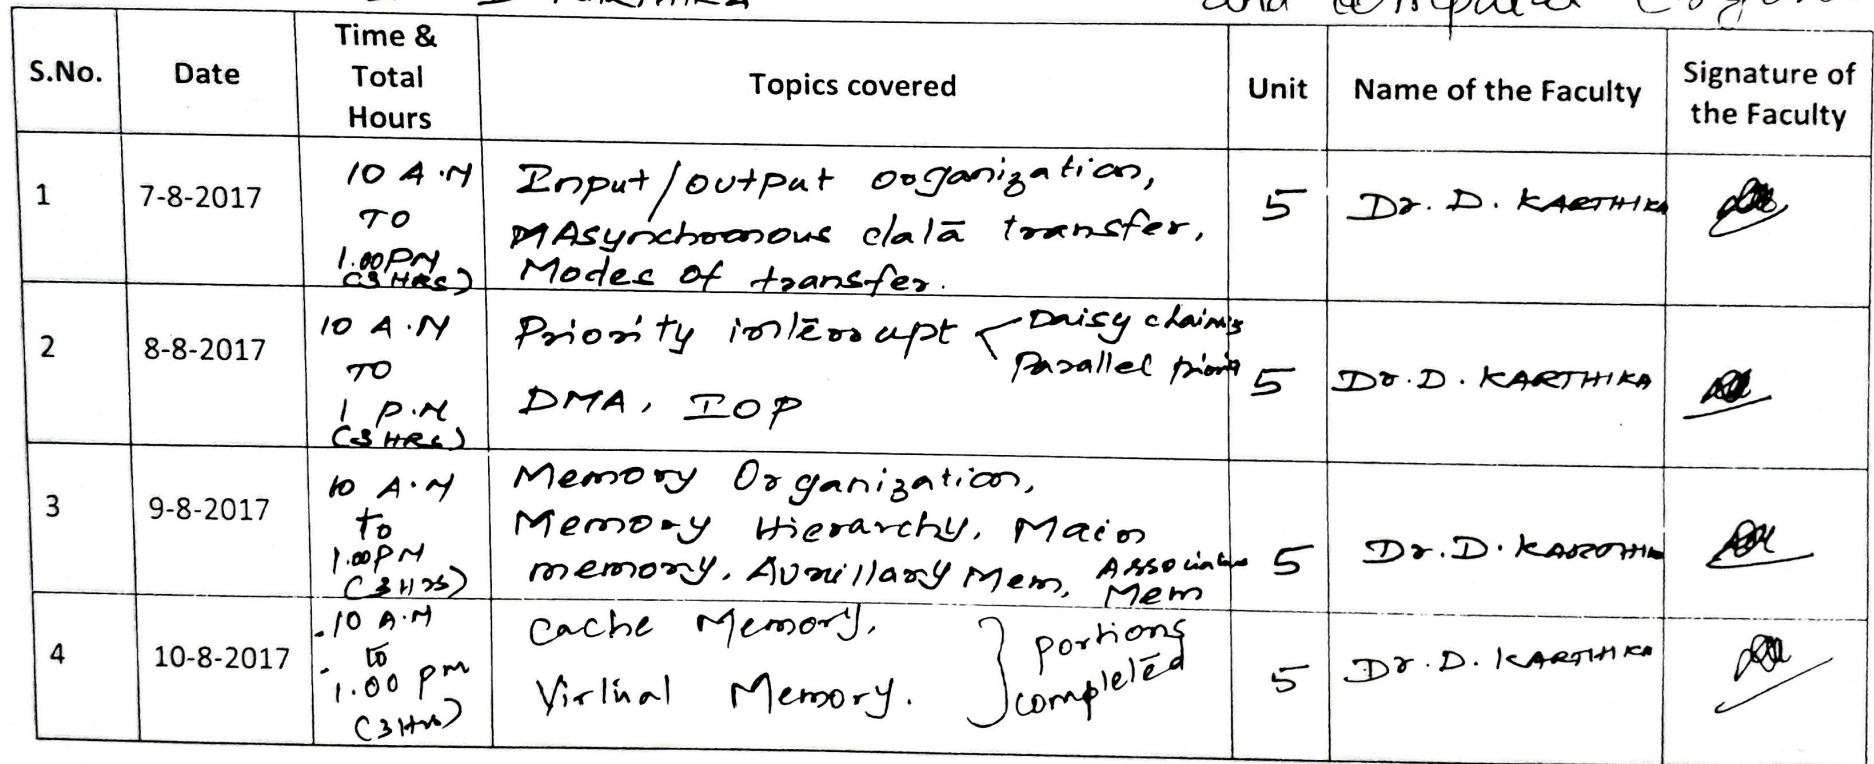 D KARTHIKA
and
S.No. Date Time & Total Hours Topics covered Unit Name of the Faculty Signature of the Faculty
1 7-8-2017 10 A.M TO 1.00PM (3 HRS)
Input/output organization,
Asynchronous data transfer,
Modes of transfer.
5 Dr. D. KARTHIKA
2 8-8-2017 10 A.M TO 1 P.M (3 HRS)
Priority interrupt Daisy chaining
Parallel priority
DMA, IOP
5 Dr. D. KARTHIKA
3 9-8-2017 10 A.M to 1.00PM (3 Hrs)
Memory Organization,
Memory Hierarchy, Main
memory, Auxillary Mem, Associative
Mem
5 Dr. D. KARTHIKA
4 10-8-2017 10 A.M to 1.00 pm (3 Hrs)
Cache Memory,
Virtual Memory.
portions
completed
5 Dr. D. KARTHIKA